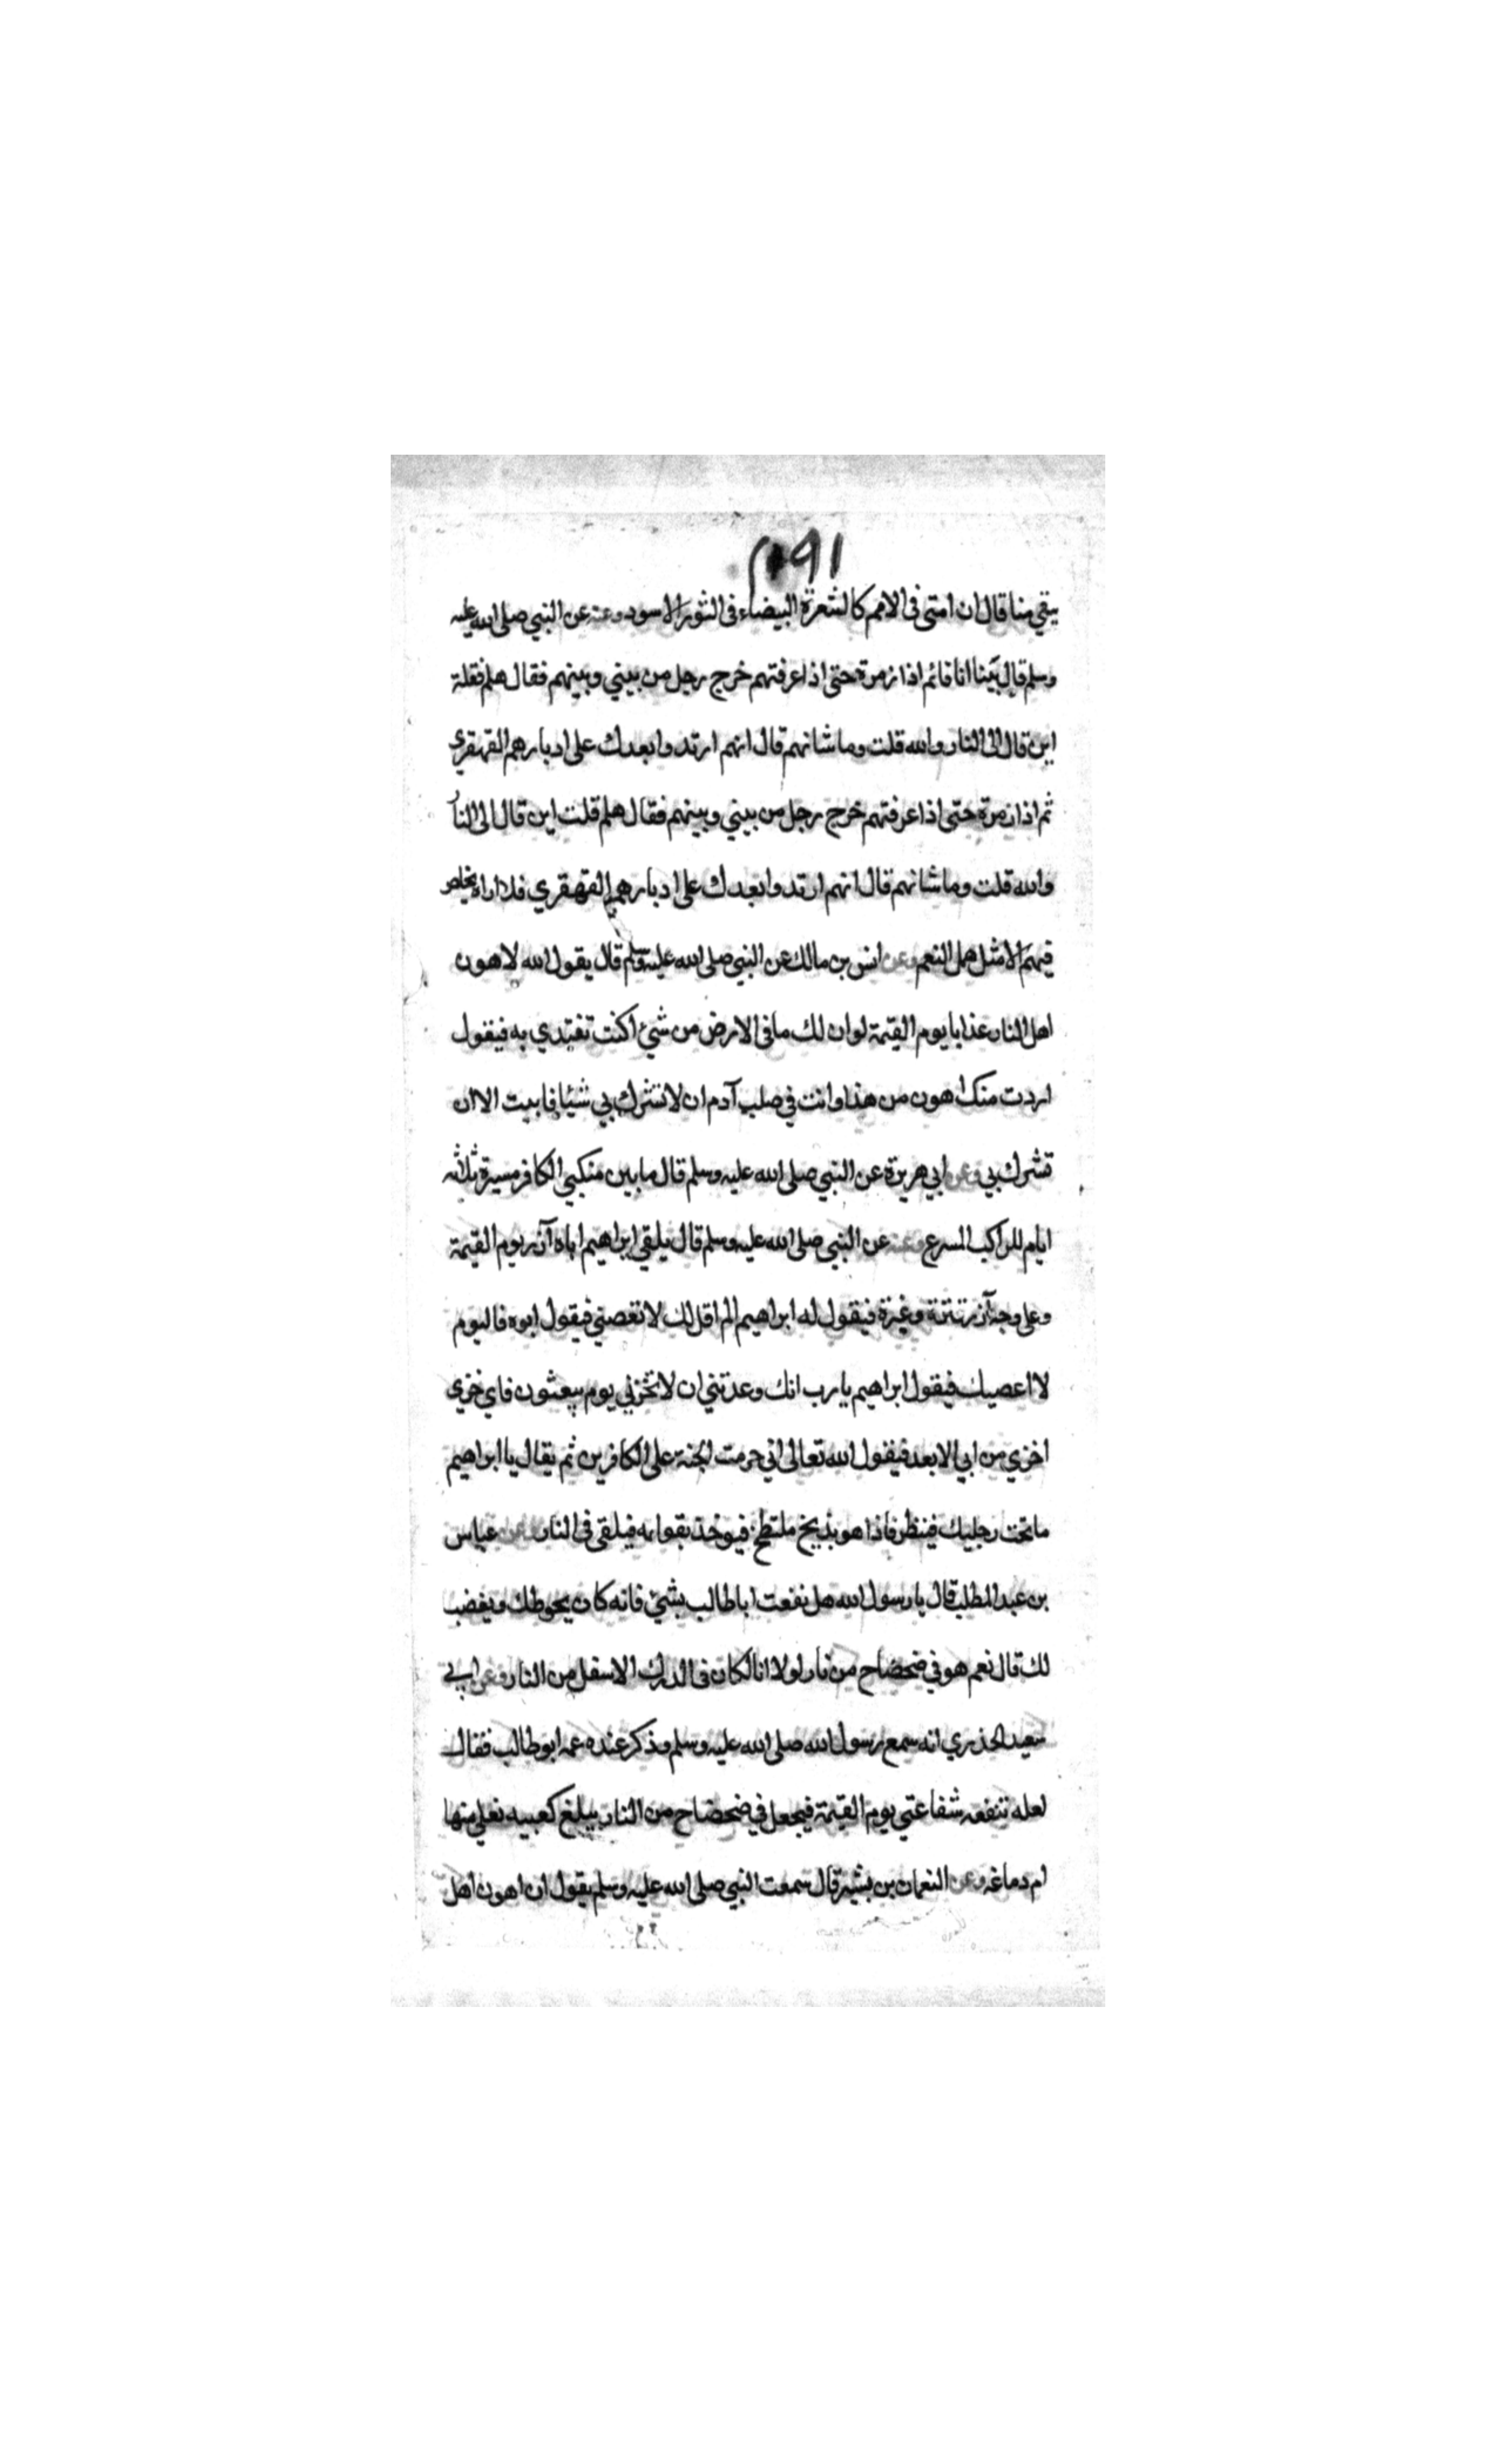 ١٩٢
يبقي منا قال ان امتى فى الامم كالشعرة البيضاء فى الثور الاسود وعنه عن النبي صلى الله عليه
وسلم قال بينا انا قائم اذا زمرة حتى اذا عرفتهم خرج رجل من بيني وبينهم فقال هلم فقلة
اين قال الى النار والله قلت وما شانهم قال انهم ارتدوا بعدك على ادبارهم القهقرى
ثم اذا زمرة حتى اذا عرفتهم خرج رجل من بيني وبينهم فقال هلم قلت اين قال الى النار
والله قلت وما شانهم قال انهم ارتدوا بعدك على ادبارهم القهقري فلا اراه يخلص
فيهم الا مثل همل النعم وعن انس بن مالك عن النبي صلى الله عليه وسلم قال يقول الله لاهون
اهل النار عذابا يوم القيمة لو ان لك ما فى الارض من شئ اكنت تفتدي به فيقول
اردت منك اهون من هذا وانت في صلب آدم ان لا تشرك بي شيئا فابيت الا ان
تشرك بي وعن ابي هريرة عن النبي صلى الله عليه وسلم قال ما بين منكبي الكافر مسيرة ثلاثه
ايام للراكب المسرع وعنه عن النبي صلى الله عليه وسلم قال يلقي ابراهيم اباه آزر يوم القيمة
وعلى وجه آزر قترة وغبرة فيقول له ابراهيم الم اقل لك لا تعصني فيقول ابوه فاليوم
لا اعصيك فيقول ابراهيم يا رب انك وعدتني ان لا تخزني يوم يبعثون فاي خزي
اخزي من ابي الابعد فيقول الله تعالى اني حرمت الجنة على الكافرين ثم يقال يا ابراهيم
ما تحت رجليك فينظر فاذا هو بذيخ ملتطخ فيوخذ بقوايمه فيلقى فى النار وعن عباس
بن عبد المطلب قال يا رسول الله هل نفعت ابا طالب بشئ فانه كان يحوطك ويغضب
لك قال نعم هو في ضحضاح من نار لولا انا لكان فى الدرك الاسفل من النار وعن ابي
سعيد الخذري انه سمع رسول الله صلى الله عليه وسلم وذكر عنده عمه ابو طالب فقال
لعله تنفعه شفاعتي يوم القيمة فيجعل في ضحضاح من النار يبلغ كعبيه تغلي منها
ام دماغه وعن النعمان بن بشير قال سمعت النبي صلى الله عليه وسلم يقول ان اهون اهل